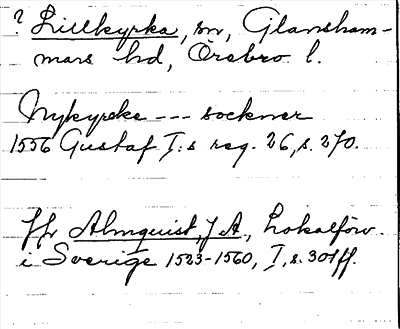 ? Lillkyrka, sn, Glansham-
mars hd, Örebro l.
Nykyrcke --- sockner
1556 Gustaf I:s reg. 26, s. 270.
Jfr Almquist, J A, Lokalförv.
i Sverige 1523-1560, I, s. 301ff.